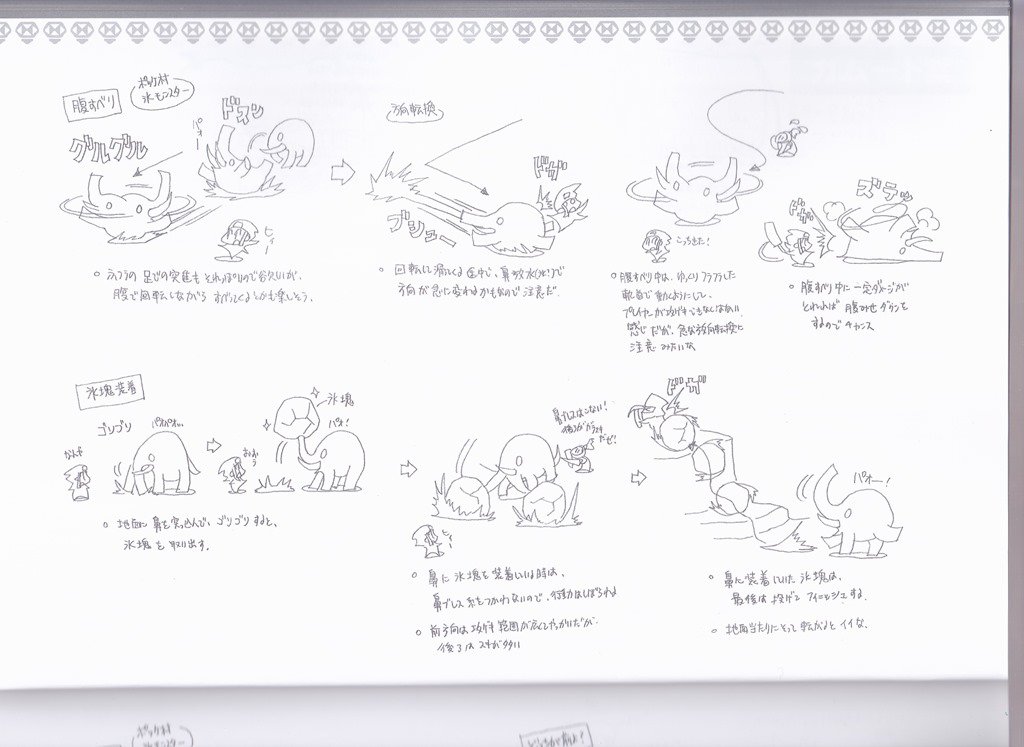 腹すべり
ポッケ村
氷モンスター
グルグル
パオー
ドスン
ヒィー
方向転換
ブシュー
ドガ
こっちきた!
ドガ
ズテッ
腹で回転しながら すべってくる
回転して滑ってくる途中で、鼻
方向が急に変わるかもなので注意だ。
腹すべり中は、ゆっくりフラフラした
軌道で動くようにして、
プレイヤーが攻げきできなくはない
感じだが、急な方向転換に
注意 みたいな
腹すべり中に一定ダメージが
とれれば 腹みせダウンを
するのでチャンス
氷塊装着
ゴリゴリ
パオパオ
なんだ
おおう
パオ!
氷塊
地面に鼻を突っ込んで、ゴリゴリすると、
氷塊を取り出す。
鼻ブレスはこない!
後ろがガラ
だぜ!
鼻に 氷塊を 装着している時は、
鼻ブレス系をつかわないので、行動はしばられる
前方向は攻げき範囲が広くてやっかいだが
後ろは スキがダダい
ドガ
パオー!
鼻に装着していた氷塊は、
最後は投げてフィニッシュする。
地面当たりにそって転がると イイな。
ポッケ村
氷モンスター